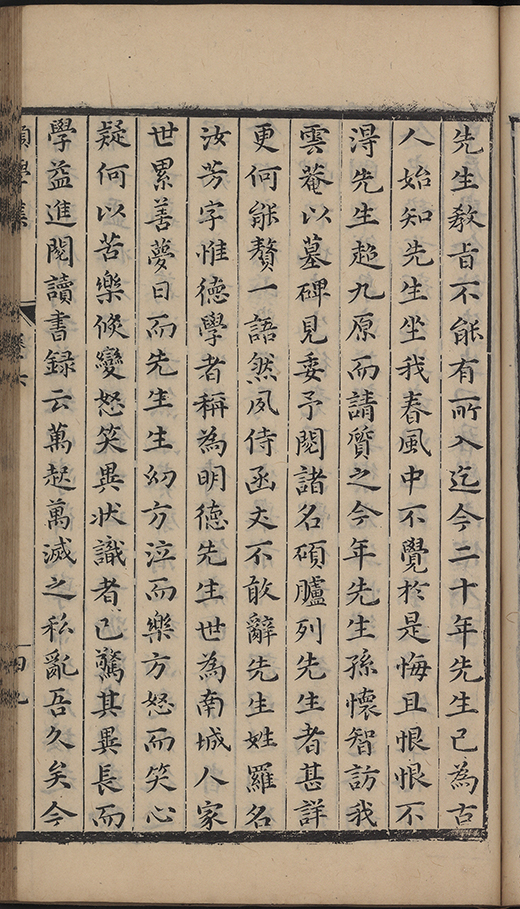 先生教旨不能有所入迄今二十年先生已為古
人始知先生坐我春風中不覺於是悔且恨恨不
淂先生超九原而請質之今年先生孫懷智訪我
雲菴以墓碑見委予閱諸名碩臚列先生者甚詳
更何能贅一語然夙侍函丈不敢辭先生姓羅名
汝芳字惟德學者稱為明德先生世為南城人家
世累善夢日而先生生幼方泣而樂方怒而笑心
疑何以苦樂倐變怒笑異狀識者已驚其異長而
學益進閱讀書録云萬起萬滅之私亂吾久矣今